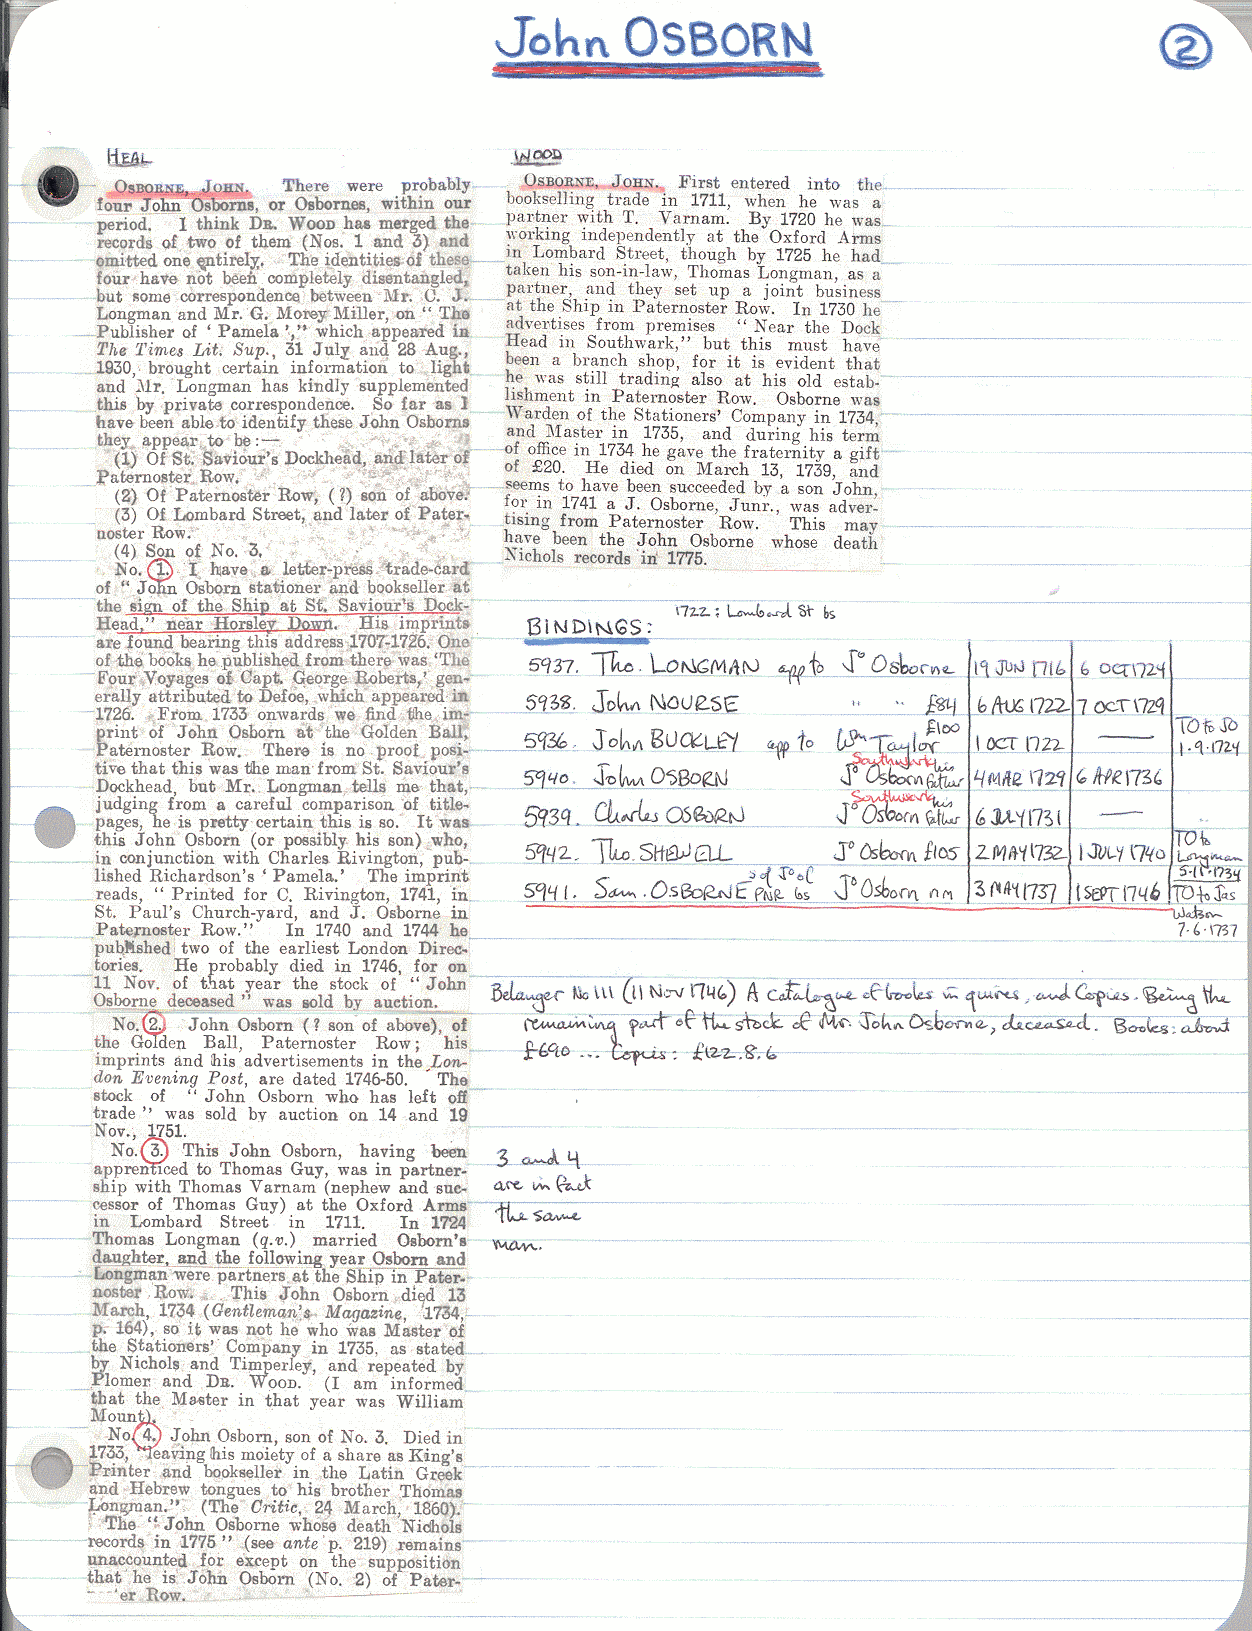 John OSBORN
2
HEAL
OSBORNE, JOHN. There were probably
four John Osborns, or Osbornes, within our
period. I think DR. WOOD has merged the
records of two of them (Nos. 1 and 3) and
omitted one entirely. The identities of these
four have not been completely disentangled,
but some correspondence between Mr. C. J.
Longman and Mr. G. Morey Miller, on " The
Publisher of ' Pamela '," which appeared in
The Times Lit. Sup., 31 July and 28 Aug.,
1930, brought certain information to light
and Mr. Longman has kindly supplemented
this by private correspondence. So far as I
have been able to identify these John Osborns
they appear to be :—
(1) Of St. Saviour's Dockhead, and later of
Paternoster Row.
(2) Of Paternoster Row, (?) son of above.
(3) Of Lombard Street, and later of Pater-
noster Row.
(4) Son of No. 3.
No. 1. I have a letter-press trade-card
of " John Osborn stationer and bookseller at
the sign of the Ship at St. Saviour's Dock-
Head," near Horsley Down. His imprints
are found bearing this address 1707-1726. One
of the books he published from there was 'The
Four Voyages of Capt. George Roberts,' gen-
erally attributed to Defoe, which appeared in
1726. From 1733 onwards we find the im-
print of John Osborn at the Golden Ball,
Paternoster Row. There is no proof posi-
tive that this was the man from St. Saviour's
Dockhead, but Mr. Longman tells me that,
judging from a careful comparison of title-
pages, he is pretty certain this is so. It was
this John Osborn (or possibly his son) who,
in conjunction with Charles Rivington, pub-
lished Richardson's ' Pamela.' The imprint
reads, " Printed for C. Rivington, 1741, in
St. Paul's Church-yard, and J. Osborne in
Paternoster Row." In 1740 and 1744 he
published two of the earliest London Direc-
tories. He probably died in 1746, for on
11 Nov. of that year the stock of " John
Osborne deceased " was sold by auction.
No. 2. John Osborn (? son of above), of
the Golden Ball, Paternoster Row; his
imprints and his advertisements in the Lon-
don Evening Post, are dated 1746-50. The
stock of " John Osborn who has left off
trade " was sold by auction on 14 and 19
Nov., 1751.
No. 3. This John Osborn, having been
apprenticed to Thomas Guy, was in partner-
ship with Thomas Varnam (nephew and suc-
cessor of Thomas Guy) at the Oxford Arms
in Lombard Street in 1711. In 1724
Thomas Longman (q.v.) married Osborn's
daughter, and the following year Osborn and
Longman were partners at the Ship in Pater-
noster Row. This John Osborn died 13
March, 1734 (Gentleman's Magazine, 1734,
p. 164), so it was not he who was Master of
the Stationers' Company in 1735, as stated
by Nichols and Timperley, and repeated by
Plomer and DR. WOOD. (I am informed
that the Master in that year was William
Mount).
No. 4. John Osborn, son of No. 3. Died in
1733, "leaving his moiety of a share as King's
Printer and bookseller in the Latin Greek
and Hebrew tongues to his brother Thomas
Longman." (The Critic, 24 March, 1860).
The " John Osborne whose death Nichols
records in 1775 " (see ante p. 219) remains
unaccounted for except on the supposition
that he is John Osborn (No. 2) of Pater-
er Row.
WOOD
OSBORNE, JOHN. First entered into the
bookselling trade in 1711, when he was a
partner with T. Varnam. By 1720 he was
working independently at the Oxford Arms
in Lombard Street, though by 1725 he had
taken his son-in-law, Thomas Longman, as a
partner, and they set up a joint business
at the Ship in Paternoster Row. In 1730 he
advertises from premises " Near the Dock
Head in Southwark," but this must have
been a branch shop, for it is evident that
he was still trading also at his old estab-
lishment in Paternoster Row. Osborne was
Warden of the Stationers' Company in 1734,
and Master in 1735, and during his term
of office in 1734 he gave the fraternity a gift
of £20. He died on March 13, 1739, and
seems to have been succeeded by a son John,
for in 1741 a J. Osborne, Junr., was adver-
tising from Paternoster Row. This may
have been the John Osborne whose death
Nichols records in 1775.
1722: Lombard St bs
BINDINGS:
5937. Tho. LONGMAN app to Jo Osborne 19 JUN 1716 6 OCT 1724
5938. John NOURSE " " £84 6 AUG 1722 7 OCT 1729
5936. John BUCKLEY app to Wm Taylor £100 1 OCT 1722 — TO to JO 1.9.1724
5940. John OSBORN Jo Osborn Southwark his father 4 MAR 1729 6 APR 1736
5939. Charles OSBORN Jo Osborn Southwark his father 6 JULY 1731 —
5942. Tho. SHEWELL Jo Osborn £105 2 MAY 1732 1 JULY 1740 TO to Longman 5.11.1734
5941. Sam. OSBORNE s of Jo of PNR bs Jo Osborn nm 3 MAY 1737 1 SEPT 1746 TO to Jas Watson 7.6.1737
Belanger No 111 (11 Nov 1746) A catalogue of books in quires, and Copies. Being the
remaining part of the stock of Mr. John Osborne, deceased. Books: about
£690 ... Copies: £122.8.6
3 and 4
are in fact
the same
man.